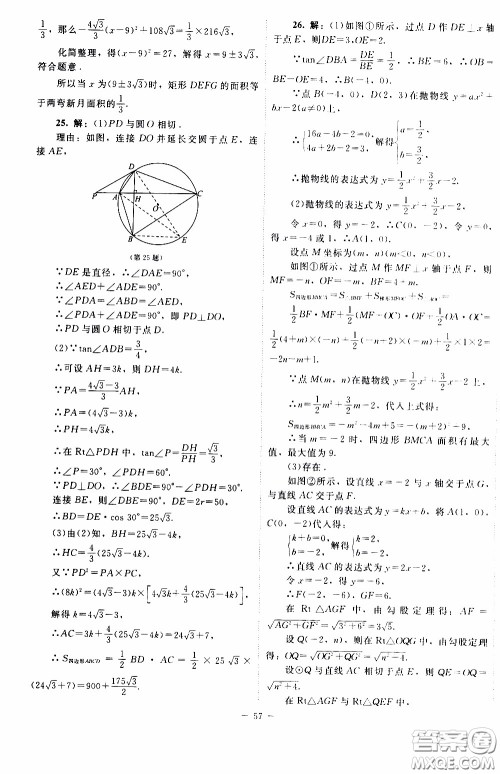 1/3，那么−(4√3)/3(x−9)²+108√3=1/3×216√3，
化简整理，得(x−9)²=27，解得 x=9±3√3，
符合题意．
所以当 x 为(9±3√3)时，矩形 DEFG 的面积等
于两弯新月面积的1/3．
25. 解：(1)PD 与圆 O 相切．
理由：如图，连接 DO 并延长交圆于点 E，连
接 AE，
D
P
A
H
C
O
B
E
(第 25 题)
∵DE 是直径，∴∠DAE=90°，
∴∠AED+∠ADE=90°．
∵∠PDA=∠ABD=∠AED，
∴∠PDA+∠ADE=90°，即 PD⊥DO，
∴PD 与圆 O 相切于点 D．
(2)∵tan∠ADB=3/4，
∴可设 AH=3k，则 DH=4k．
∵PA=(4√3−3)/3 AH，
∴PA=(4√3−3)k，
∴PH=4√3k，
∴在 Rt△PDH 中，tan∠P=DH/PH=√3/3，
∴∠P=30°，∠PDH=60°．
∵PD⊥DO，∴∠BDE=90°−∠PDH=30°．
连接 BE，则∠DBE=90°，DE=2r=50，
∴BD=DE·cos 30°=25√3．
(3)由(2)知，BH=25√3−4k，
∴HC=4/3(25√3−4k)．
又∵PD²=PA×PC，
∴(8k)²=(4√3−3)k×[4√3k+4/3(25√3−4k)]，
解得 k=4√3−3，
∴AC=3k+4/3(25√3−4k)=24√3+7，
∴S四边形ABCD=1/2 BD·AC=1/2×25√3×
(24√3+7)=900+(175√3)/2．
26. 解：(1)如图①所示，过点 D 作 DE⊥x 轴
于点 E，则 DE=3，OE=2．
∵tan∠DBA=DE/BE=1/2，∴BE=6，∴OB=
BE−OE=4，∴B(−4，0)．
∵点 B(−4，0)，D(2，3)在抛物线 y=ax²+
bx−2(a≠0)上，
∴{16a−4b−2=0，4a+2b−2=3，解得{a=1/2，b=3/2，
∴抛物线的表达式为 y=1/2x²+3/2x−2．
(2)抛物线的表达式为 y=1/2x²+3/2x−2，
令 x=0，得 y=−2，∴C(0，−2)，令 y=0，得
x=−4 或 1，∴A(1，0)．
设点 M 坐标为(m，n)(m<0，n<0)．
如图①所示，过点 M 作 MF⊥x 轴于点 F，则
MF=−n，OF=−m，BF=4+m．
S四边形BMCA=S△BMF+S梯形MFOC+S
=1/2BF·MF+1/2(MF+OC)·OF+1/2OA·OC=
1/2(4+m)×(−n)+1/2(−n+2)×(−m)+1/2×1×2=
−2n−m+1．
∵点 M(m，n)在抛物线 y=1/2x²+3/2x−2 上，
∴n=1/2m²+3/2m−2，代入上式得：
S四边形BMCA=−m²−4m+5=−(m+2)²+9，
∴当 m=−2 时，四边形 BMCA 面积有最大
值，最大值为 9．
(3)存在．
如图②所示，设直线 AC 与 y 轴交于点 G，
与直线 AC 交于点 F．
设直线 AC 的表达式为 y=kx+b，将 A(1，0)，
C(0，−2)代入得：
{k+b=0，b=−2，解得{k=2，b=−2，
∴直线 AC 的表达式为 y=2x−2，
令 x=−2，得 y=−6，
∴F(−2，−6)，GF=6．
在 Rt△AGF 中，由勾股定理得：AF=
√(AG²+GF²)=√(3²+6²)=3√5．
设 Q(−2，n)，则在 Rt△OQG 中，由勾股定
理得：OQ=√(OG²+QG²)=√(n²+4)．
设⊙Q 与直线 AC 相切于点 E，则 QE=OQ=
√(n²+4)．
在 Rt△AGF 与 Rt△QEF 中，
— 57 —